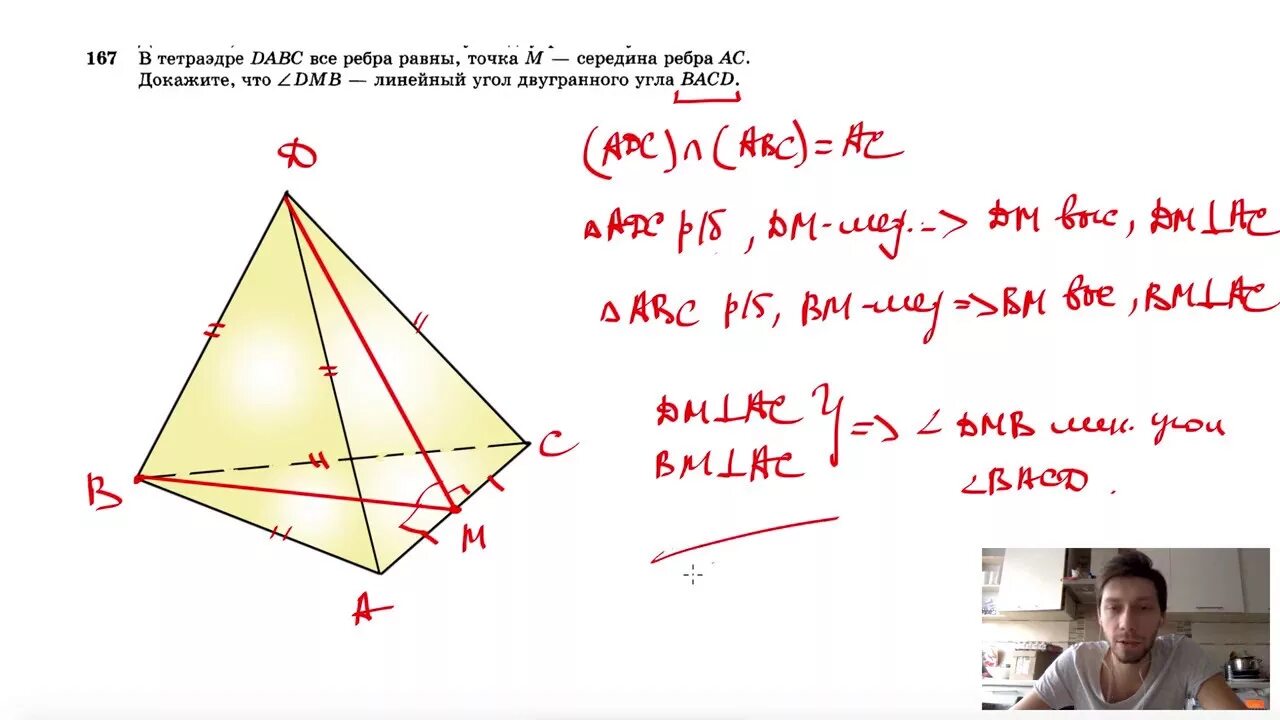 167 В тетраэдре DABC все ребра равны, точка M — середина ребра AC.
Докажите, что ∠DMB — линейный угол двугранного угла BACD.
(ADC)∩(ABC)=AC
D
△ADC р/б, DM-мед. => DM выс, DM⊥AC
△ABC р/б, BM-мед => BM выс, BM⊥AC
DM⊥AC } => ∠DMB лин. угол
BM⊥AC
∠BACD.
C
B
M
A